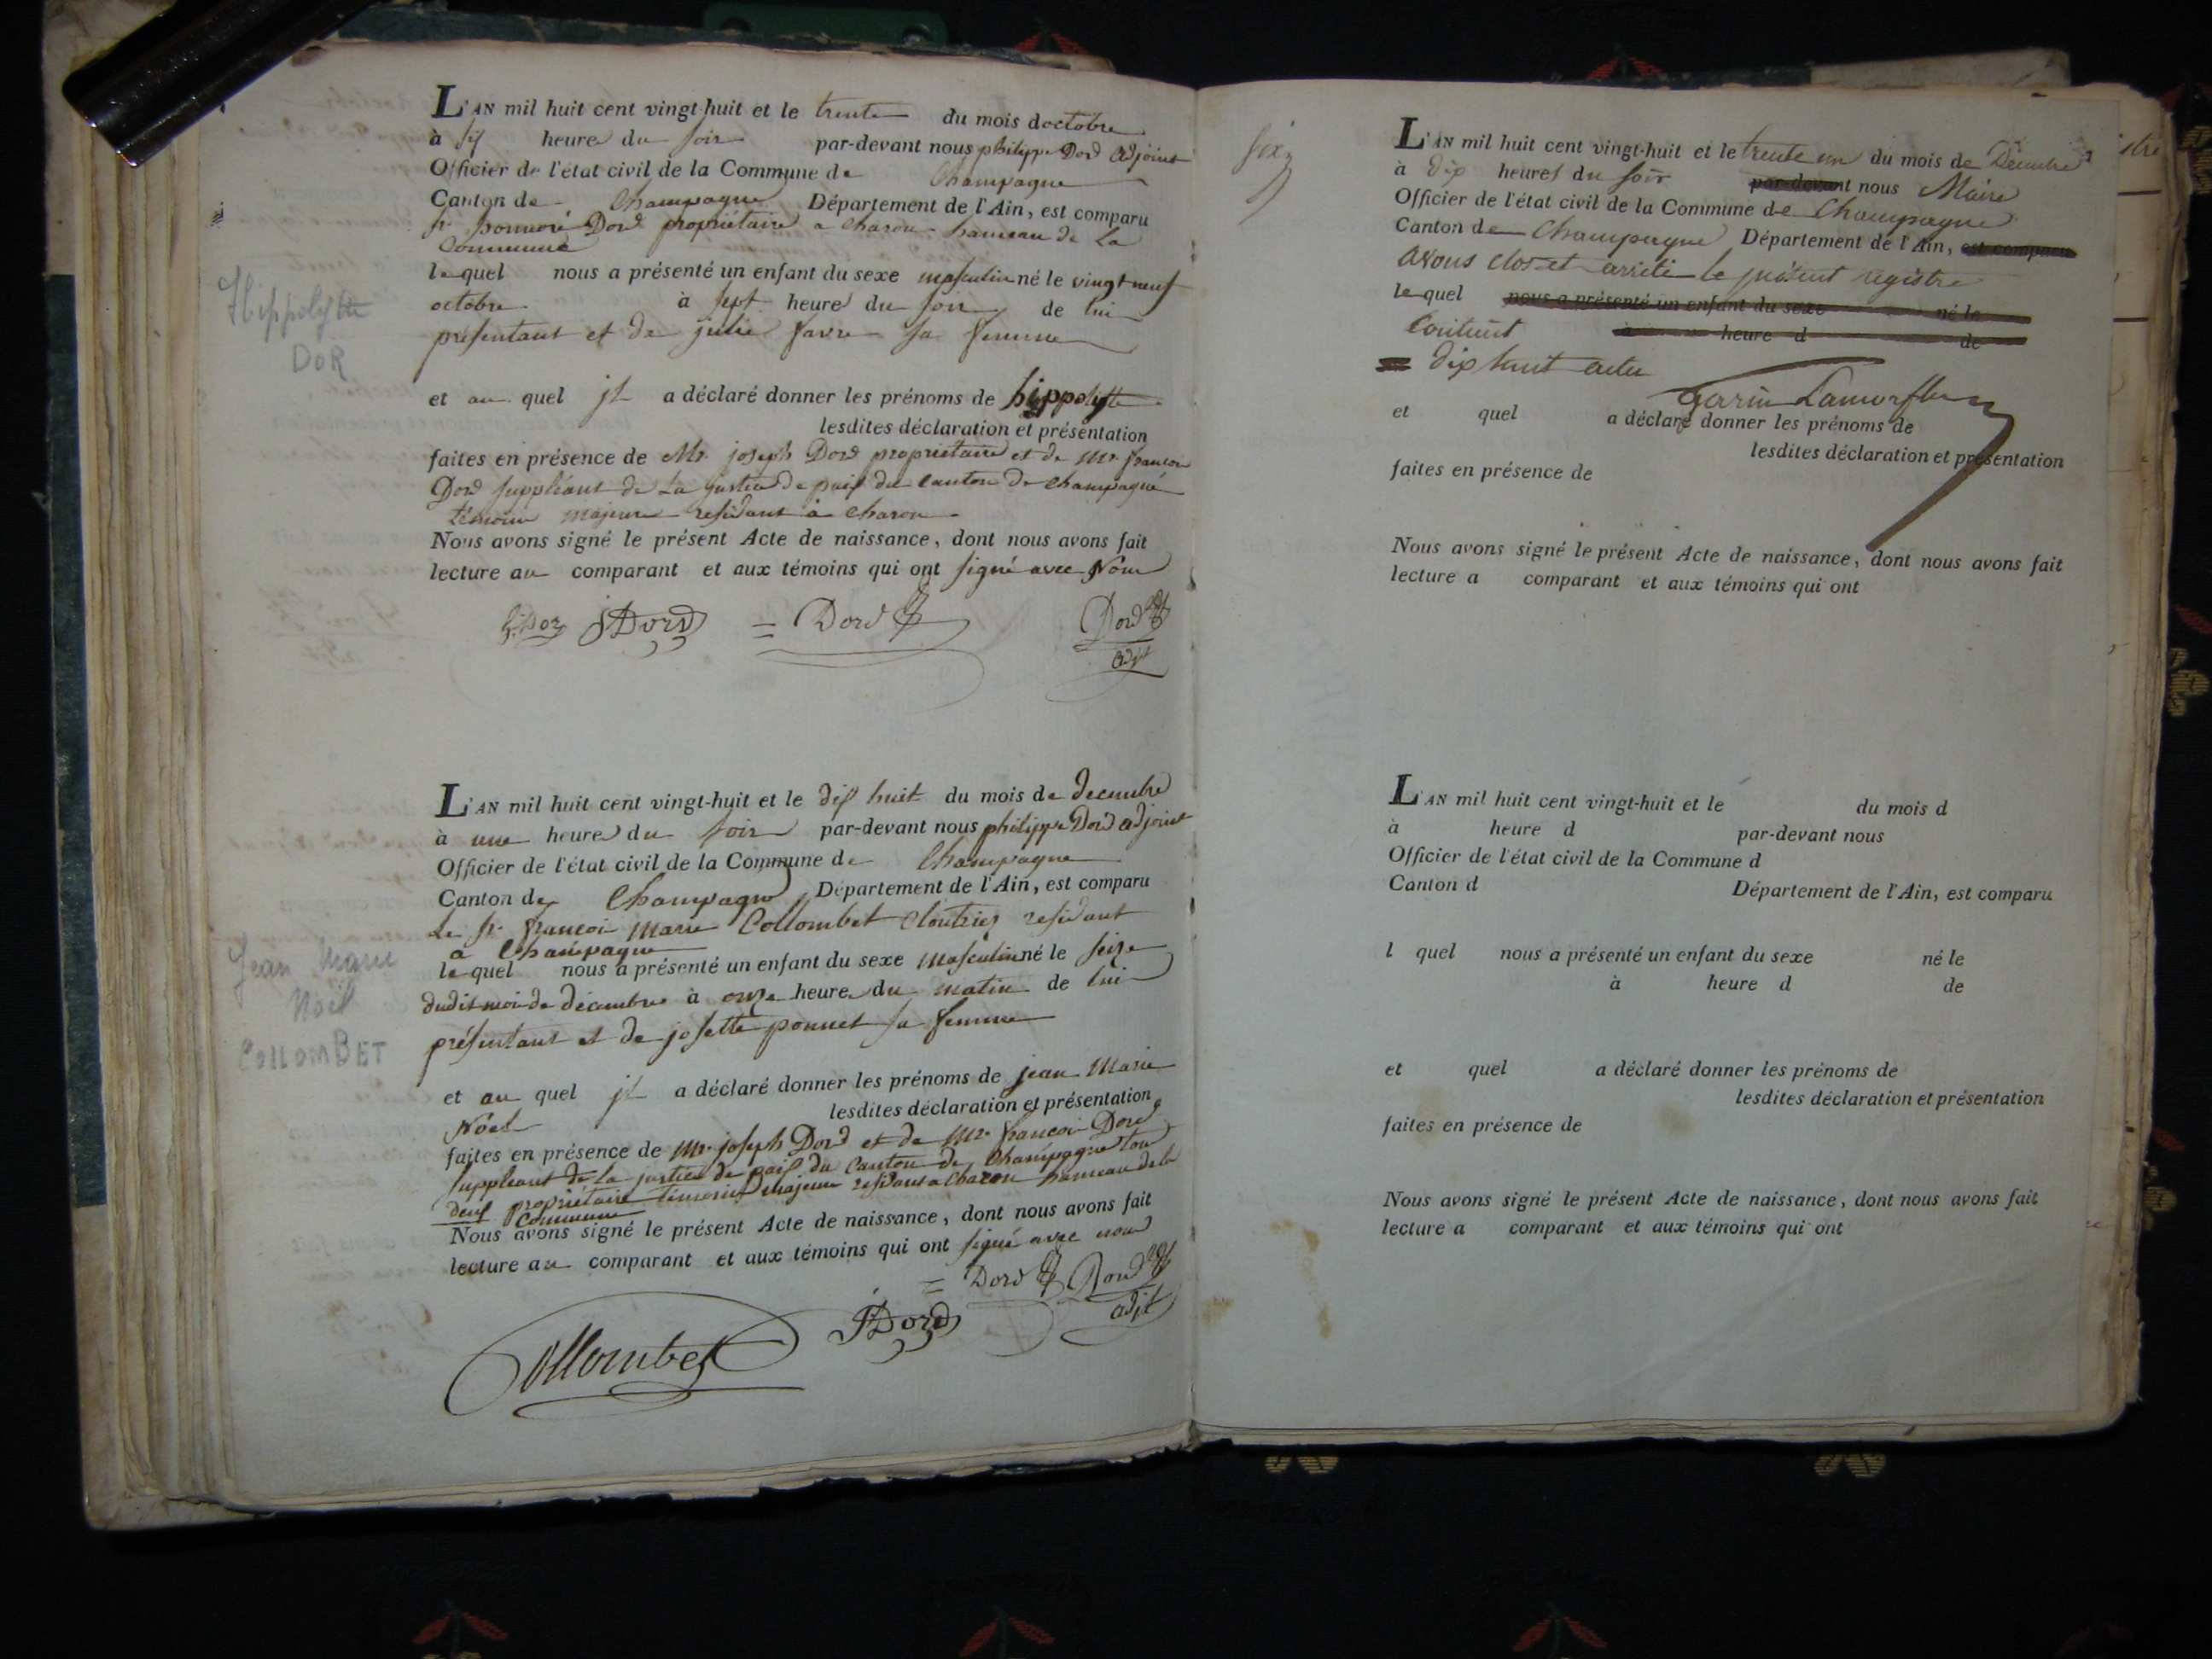 L'AN mil huit cent vingt-huit et le trente du mois doctobre
à six heures du soir par-devant nous philippe Dord adjoint
Officier de l'état civil de la Commune de Champagne
Canton de Champagne Département de l'Ain, est comparu
sr honnoré Dord propriétaire a charon hameau de La
Commune
lequel nous a présenté un enfant du sexe masculin né le vingt neuf
octobre à sept heures du soir de lui
présentant et de julie favre sa femme
Hippolytte
DOR
et au quel jl a déclaré donner les prénoms de hippolytte
lesdites déclaration et présentation
faites en présence de Mr. joseph Dord propriétaire et de Mr. francois
Dord suppléant de La justice de paix du canton de champagne
témoins majeurs résidant à charon
Nous avons signé le présent Acte de naissance, dont nous avons fait
lecture au comparant et aux témoins qui ont signé avec Nous
h. Dor JDord = Dord Dord
adjt
L'AN mil huit cent vingt-huit et le dix huit du mois de decembre
à une heure du soir par-devant nous philippe Dord adjoint
Officier de l'état civil de la Commune de Champagne
Canton de Champagne Département de l'Ain, est comparu
Le sr. francois marie Collombet cloutrier residant
a Champagne
lequel nous a présenté un enfant du sexe masculin né le seize
dudit moi de décembre à onze heure du matin de lui
présentant et de josette ponnet sa femme
Jean Marie
Noël
COLLOMBET
et au quel jl a déclaré donner les prénoms de jean Marie
Noël lesdites déclaration et présentation
faites en présence de Mr. joseph Dord et de Mr. francois Dord
suppleant de la justice de paix du Canton de Champagne tou
deux propriétaire témoins majeur residant a charon hameau de la
Commune
Nous avons signé le présent Acte de naissance, dont nous avons fait
lecture au comparant et aux témoins qui ont signé avec nous
= Dord Dord
adjt
JDord
Collombet
six
L'AN mil huit cent vingt-huit et le trente un du mois de Décembre
à dix heures du soir par-devant nous Maire
Officier de l'état civil de la Commune de Champagne
Canton de Champagne Département de l'Ain, est comparu
avons clos et arrêté le présent registre
lequel nous a présenté un enfant du sexe né le
Contenant à heure d de
dix huit actes
et quel a déclaré donner les prénoms de
lesdites déclaration et présentation
faites en présence de
Nous avons signé le présent Acte de naissance, dont nous avons fait
lecture a comparant et aux témoins qui ont
L'AN mil huit cent vingt-huit et le du mois d
à heure d par-devant nous
Officier de l'état civil de la Commune d
Canton d Département de l'Ain, est comparu
l quel nous a présenté un enfant du sexe né le
à heure d de
et quel a déclaré donner les prénoms de
lesdites déclaration et présentation
faites en présence de
Nous avons signé le présent Acte de naissance, dont nous avons fait
lecture a comparant et aux témoins qui ont